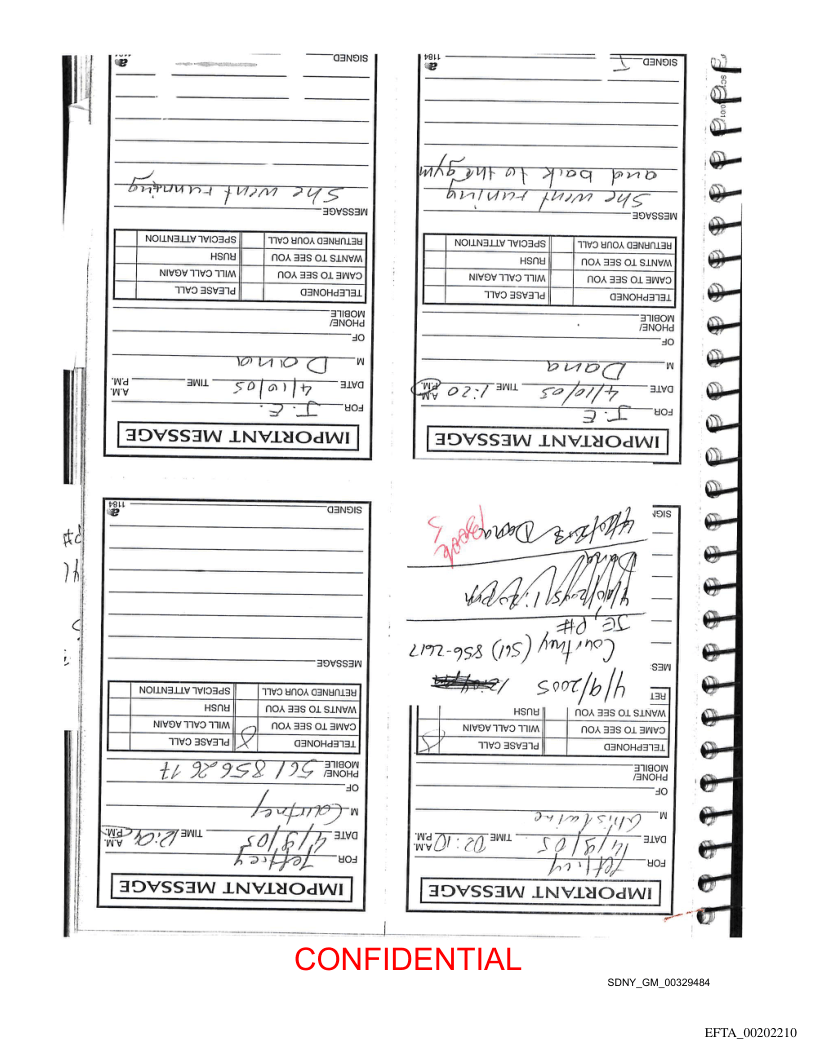 IMPORTANT MESSAGE
FOR Jeffrey
DATE 4/9/05 TIME 02:10 A.M. P.M.
M Ghislaine
OF
PHONE/
MOBILE
TELEPHONED PLEASE CALL
CAME TO SEE YOU WILL CALL AGAIN
WANTS TO SEE YOU RUSH
RET
MES
4/9/2005
Courtney (561) 856-2617
JE, P#
4/10/2005/1:20pm
Dana
Dana
SIGN
IMPORTANT MESSAGE
FOR Jeffrey
DATE 4/9/05 TIME 12:04 A.M. P.M.
M Courtney
OF
PHONE/
MOBILE 561 856 26 17
TELEPHONED PLEASE CALL
CAME TO SEE YOU WILL CALL AGAIN
WANTS TO SEE YOU RUSH
RETURNED YOUR CALL SPECIAL ATTENTION
MESSAGE
SIGNED
1184
P#
IMPORTANT MESSAGE
FOR J.E
DATE 4/10/05 TIME 1:20 A.M. P.M.
M Dana
OF
PHONE/
MOBILE
TELEPHONED PLEASE CALL
CAME TO SEE YOU WILL CALL AGAIN
WANTS TO SEE YOU RUSH
RETURNED YOUR CALL SPECIAL ATTENTION
MESSAGE
She went running
and back to the gym
SIGNED
1184
IMPORTANT MESSAGE
FOR J.E.
DATE 4/10/05 TIME A.M. P.M.
M Dana
OF
PHONE/
MOBILE
TELEPHONED PLEASE CALL
CAME TO SEE YOU WILL CALL AGAIN
WANTS TO SEE YOU RUSH
RETURNED YOUR CALL SPECIAL ATTENTION
MESSAGE
She went running
SIGNED
CONFIDENTIAL
SDNY_GM_00329484
EFTA_00202210